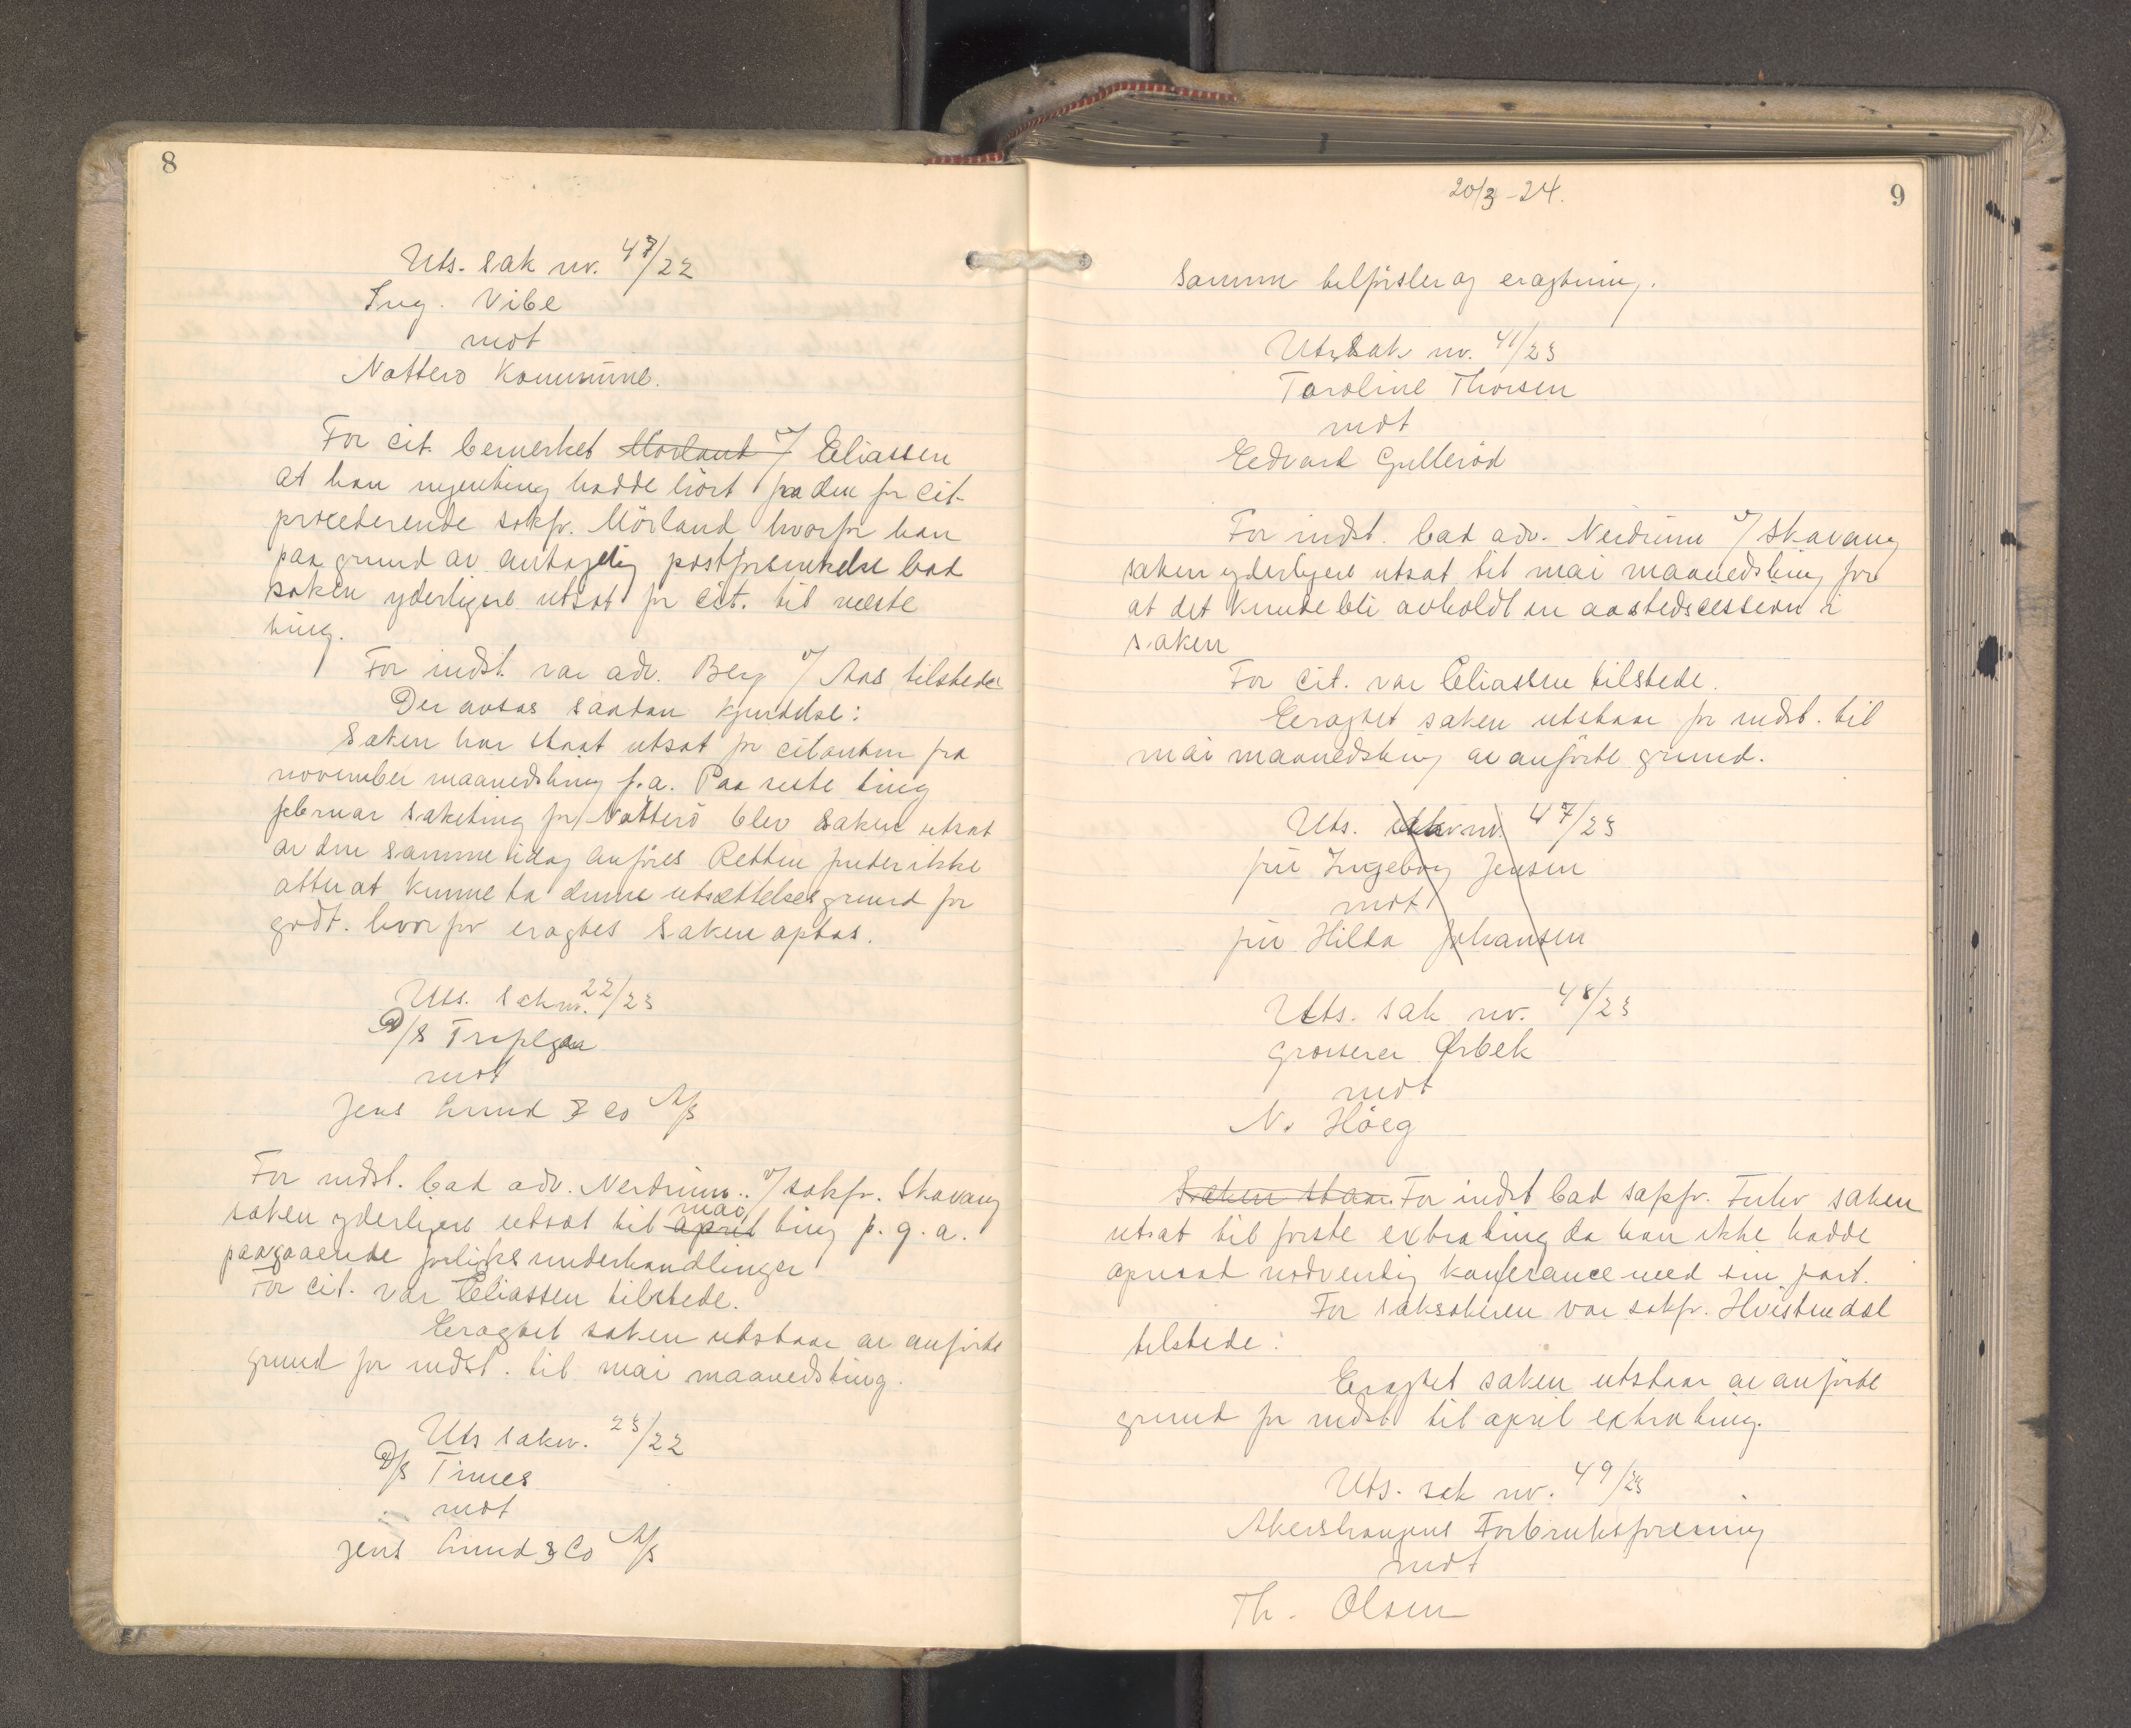 8
Uts. sak nr. 47/22
Ing. Vibe
mot
Nøtterø Kommune.
For cit. bemerket Mørland v/ Eliassen
at han ingenting hadde hørt fra den for cit.
procederende sakf. Mörland hvorfor han
paa grund av antagelig postforsinkelse bad
saken yderligere utsat for cit. til næste
ting.
For indst. var adv. Berg v/ Aas tilstede
Der avsas saadan kjendelse:
Saken har staat utsat for citanten fra
november maanedsting f.a. Paa siste ting
februar saketing for Nötterö blev saken utsat
av den samme idag anføres Retten finder ikke
atter at kunne ta denne utsættelsesgrund for
godt. hvorfor eragtes saken optas.
Uts. sak nr. 22/23
D/S Trefligen
mot
Jens Lund & Co A/S
For indst. bad adv. Nerdrum v/ sakf. Skavang
saken yderligere utsat til april ting p. g. a.
mai
paagaaende forliksunderhandlinger
For cit. var Eliassen tilstede.
Eragtet saken utstaar av anførte
grund for indst. til mai maanedsting.
Uts sak nr. 23/22
D/S Times
mot
Jens Lund & Co A/S
20/3 - 24.
9
Samme tilførsler og eragtning.
Uts. sak nr. 41/23
Taroline Thorsen
mot
Edvard Gulleröd
For indst. bad adv. Nerdrum v/ Skavang
saken yderligere utsat til mai maanedsting for
at det kunde bli avholdt en aastedscession i
saken
For cit. var Eliassen tilstede.
Eragtet saken utstaar for indst. til
mai maanedsting av anförte grund.
Uts. sak nr. 47/23
fru Ingeborg Jensen
mot
fru Hilda Johansen
Uts. sak nr. 48/23
grosserer Ørbek
mot
N. Höeg
Saken staar For indst bad sakf. Fuhr saken
utsat til første extrating da han ikke hadde
opnaad nødvendig konferance med sin part.
For saksøkeren var sakf. Hvistendal
tilstede:
Eragtet saken utstaar av anførte
grund for indst til april extrating.
Uts. sak nr. 49/23
Akershaugens Forbruksforening
mot
Th. Olsen